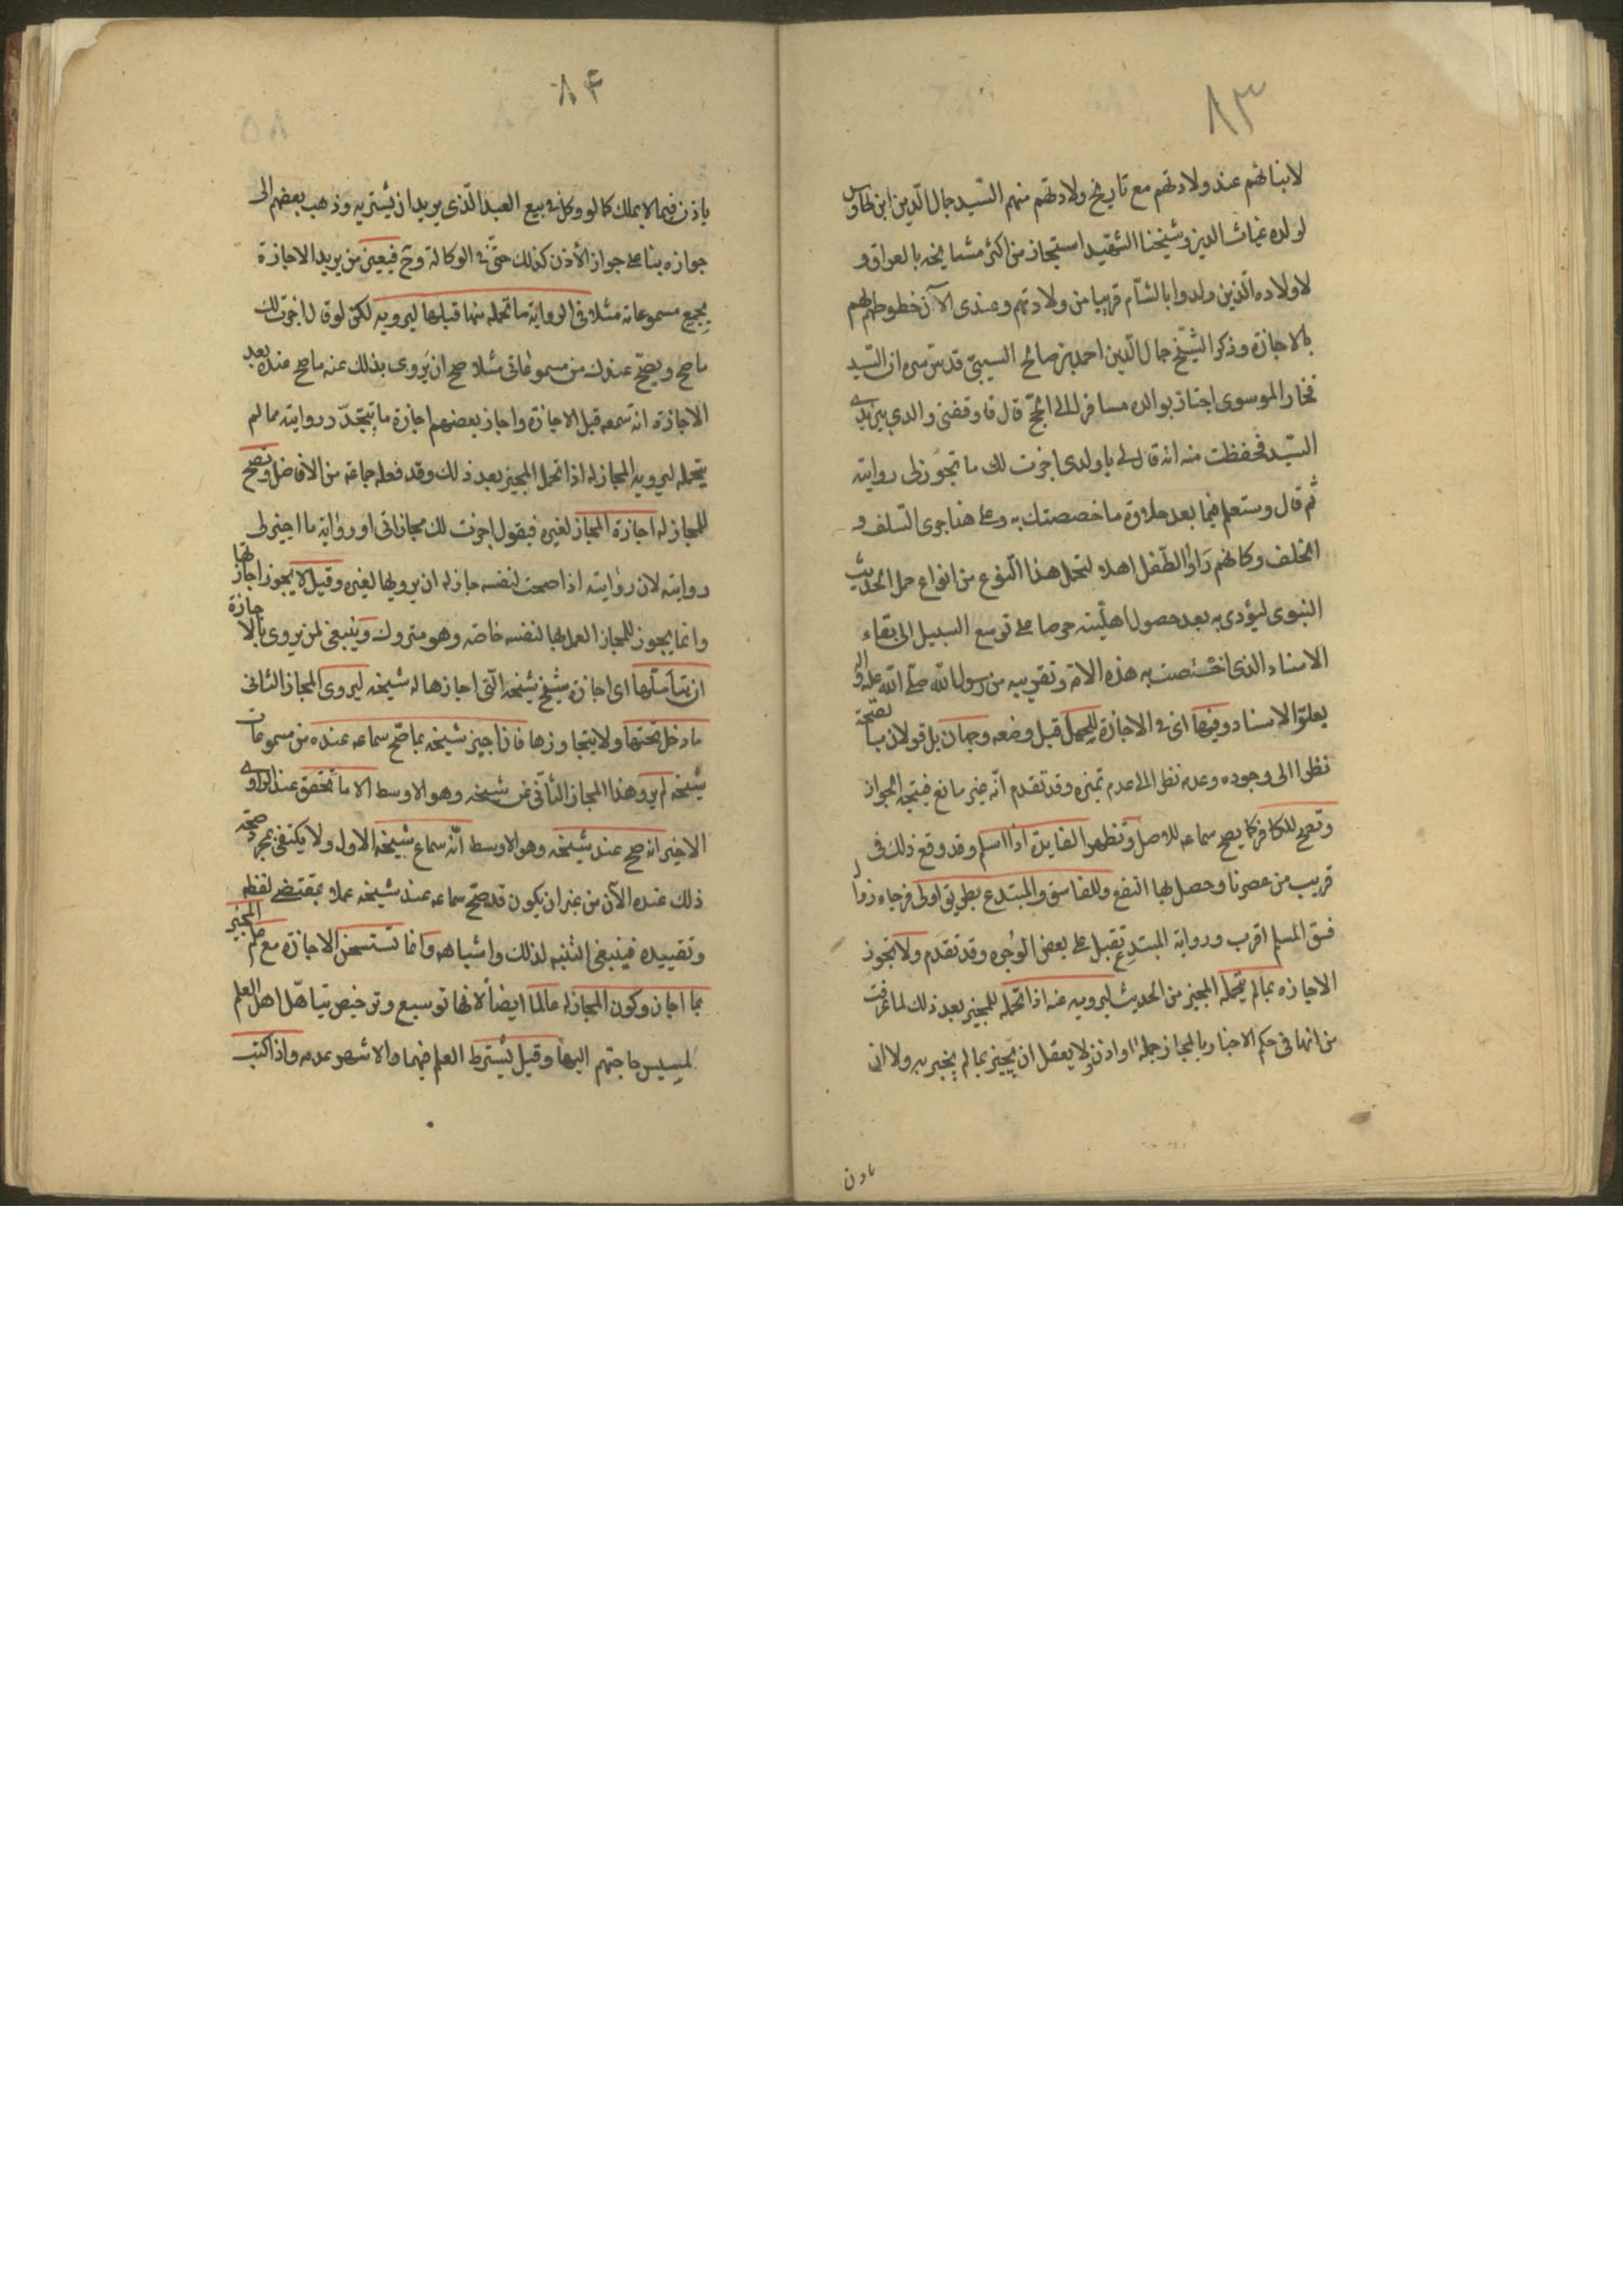 ٨٣
لابنائهم عند ولادتهم مع تاريخ ولادتهم منهم السّيد جمال الّدين ابن طاوس
لولده غياث الدين وشيخنا الشّهيد استجاز من اكثر مشايخه بالعراق و
لاولاده الّذين ولدوا بالشّام قريبا من ولادتهم وعندى الآن خطوطهم لهم
بالاجازة وذكر الشّيخ جمال الّدين احمد بن صالح السيبىّ قدّس سره ان السّيد
فخار الموسوى اجتاز بوالده مسافرا الى الحّج قال فاوقفنى والدي بين يدي
السّيد فحفظت منه انه قال لى يا ولدى اجزت لك ما تجوز لى روايته
ثم قال وستعلم فيما بعد حلاوة ما خصصتك به وعلى هذا جرى السّلف و
الخلف وكانهم رَاوُا الطّفل اهلا لتحمل هذا النّوع من انواع حمل الحديث
النبوى ليؤدى به بعد حصول اهلّيته حرصا على توسع السبيل الى بقاء
الاسناد الذى اختُصت به هذه الامّة وتقريبه من رسول اللّه صلّى اللّه عليه واله
بعلّو الاسناد وفيها اى فى الاجازة للحمل قبل وضعه وجهان بل قولان بالصّحة
نظرا الى وجوده وعدمه نظرا الى عدم تميزه وقد تقدم انّه غير مانع فيتجه الجواز
وتصح للكافر كما يصح سماعه للاصل وتظهر الفايدة اذا اسلم وقد وقع ذلك فى
قريب من عصرنا وحصل بها النفع وللفاسق والمبتدع بطريق اولى فرجاء زوال
فسق المسلم اقرب ورواية المبتدِع تقبل على بعض الوُجوه وقد تقدّم ولا تجوز
الاجازه بما لم يتحمّله المجيز من الحديث ليرويه عنه اذا تحمّله المجيز بعد ذلك لما عرفت
من انها فى حكم الاخبار بالمجاز جملةً او اذن ولا يعقل ان يُجيز بما لم يخبر به ولا ان
ياذن
٨۴
ياذن فيما لا يملك كما لو وكل فى بيع العبد الّذى يريد ان يشتريه وذهب بعضهم الى
جوازه بنا على جواز الأذن كذلك حتّى فى الوكالة وح فيعين من يريد الاجازة
بجميع مسموعاته مثلا فى الرواية ما تحمله منها قبلها ليرويه لكن لو قال اجزت لك
ما صح ويصّح عندك من مسموعاتى مثلا صح ان يَروى بذلك عنه ما صح عنده بعد
الاجازة انه سمعه قبل الاجازة واجاز بعضهم اجازة ما يتجدّد روايته مما لم
يتحمله ليرويه المجاز له اذا تحمل المجيز بعد ذلك وقد فعله جماعة من الافاضل وتصح
للمجاز له اجازة المجاز لغيره فيقول اجزت لك مجازاتى او رواية ما اجيز لى
روايته لان روايته اذا صحت لنفسه جاز له ان يرويها لغيره وقيل لا يجوز اجازتها
وانما يجوز للمجاز العمل بها لنفسه خاصّه وهو متروك وينبغى لمن يروى بالاجازة
ان يتأملها اى اجازة شيخ شيخه الّتى اجازها له شيخه ليروى المجاز الثانى
ما دخل تحتها ولا يتجاوزها فان اجيز شيخه بما صّح سماعه عنده من مسموعات
شيخه لم يرو هذا المجاز الثأنى عن شيخه وهو الاوسط الا ما تحقق عند الراوى
الاخير انه صح عند شيخه وهو الاوسط انّه سماع شيخه الاول ولا يكتفى بمجرد صحّة
ذلك عنده الآن من غير ان يكون قد صّح سماعه عند شيخه عملا بمقتضى لفظه
وتقييده فينبغى التنبه لذلك واشباهه وانما تستحسن الاجازة مع علم المجيز
بما اجاز وكون المجاز له عالما ايضا لانها توسيع وترخيص يتاهّل اهل العلم
لمسيس حاجتهم اليها وقيل يشترط العلم فيهما والاشهر عدمه واذا كتب